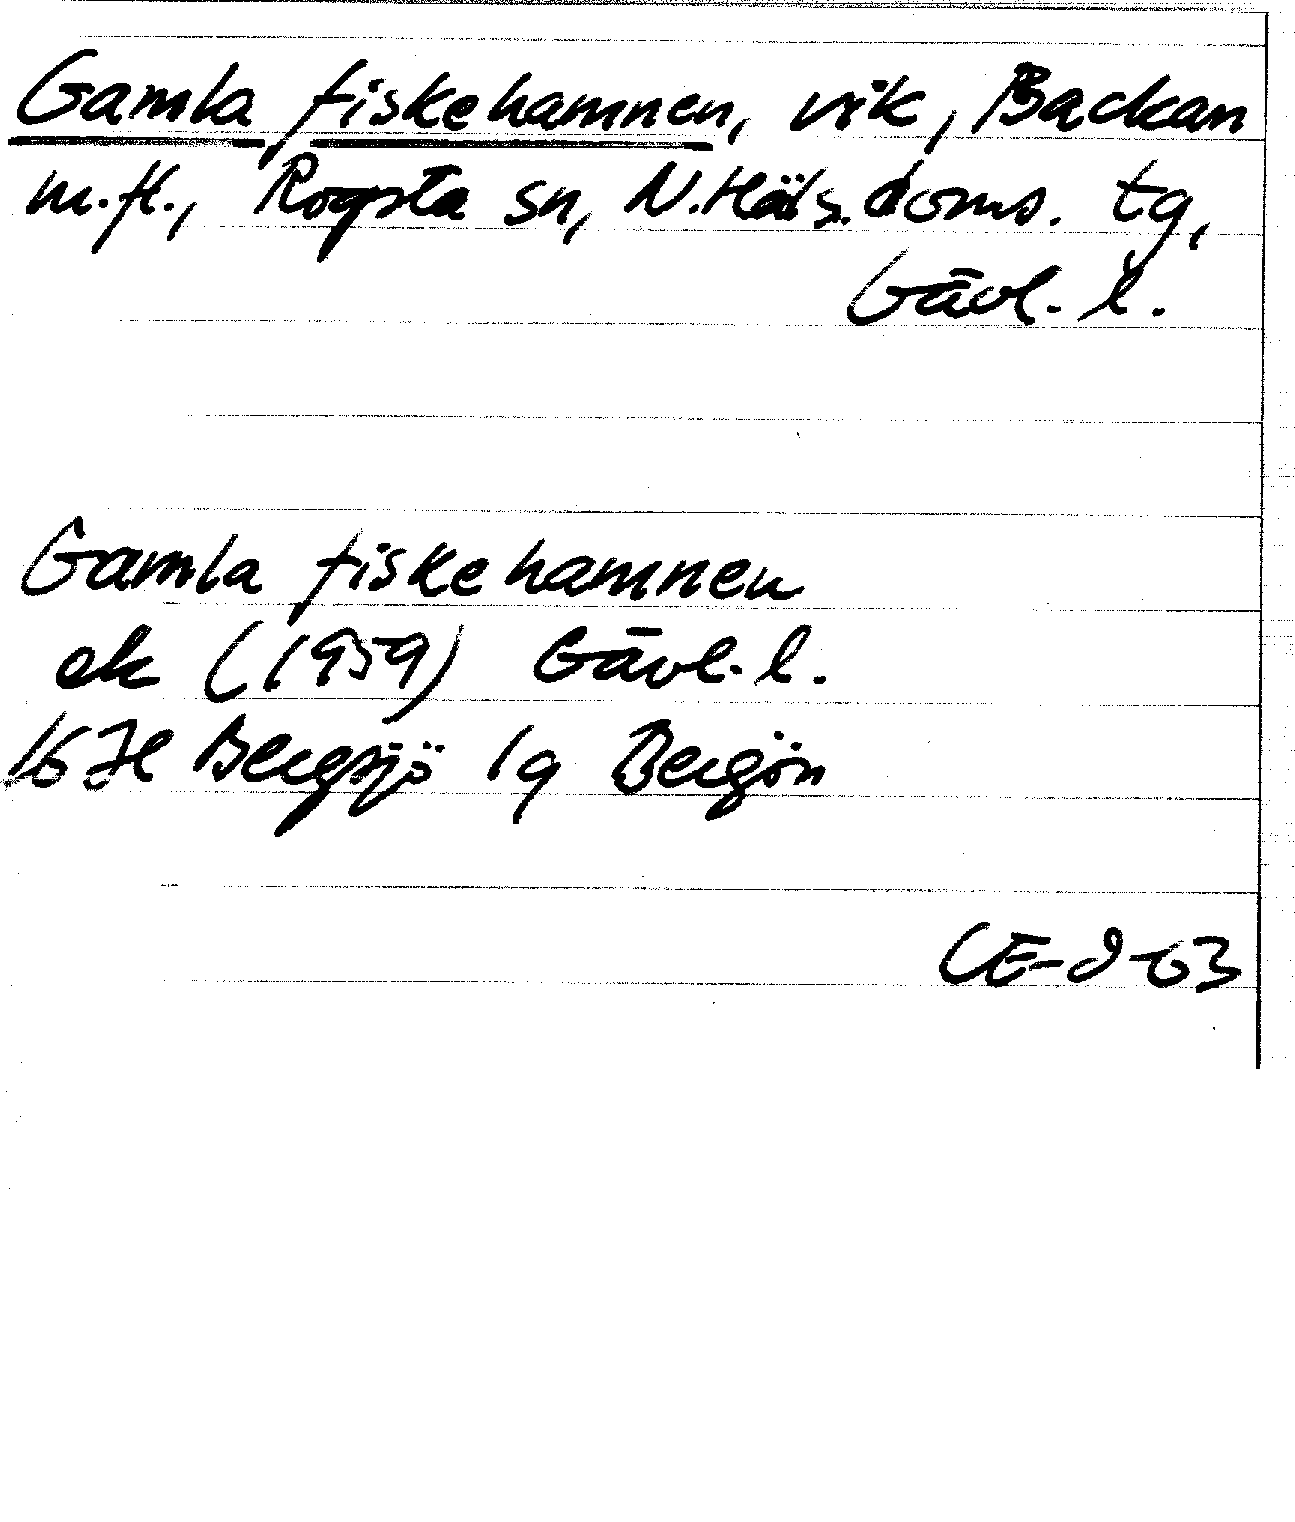 Gamla fiskehamnen, vik, Backan
m.fl., Rogsta sn, N.Häls.doms. tg,
Gävl. l.
Gamla fiskehamnen
ek (1959) Gävl. l.
16 H Bergsjö 1g Bergön
CE-9-63